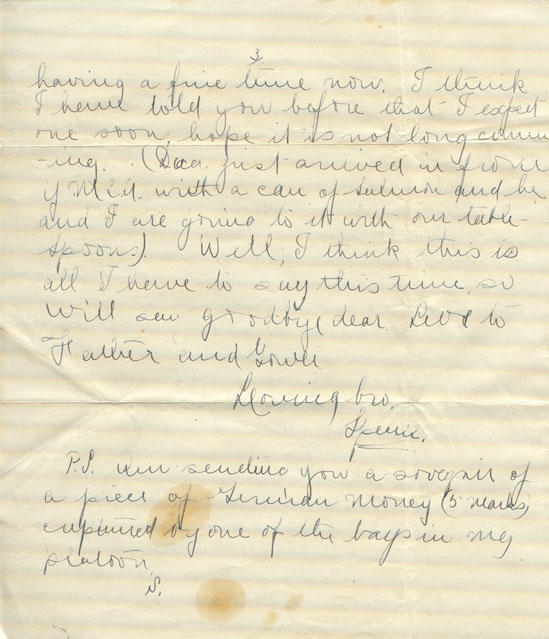 3
having a fine time now. I think
I have told you before that I expect
one soon, hope it is not long comm
-ing. (Doc. just arrived in from
Y.M.C.A. with a can of Salmon and he
and I are going to it with our table-
spoons). Well, I think this is
all I have to say this time, so
will say goodbye dear. Love to
Father and
Loving bro.
P.S. Am sending you a sovenir of
a piece of German money (5 marks)
captured by one of the boys in my
platoon.
S.